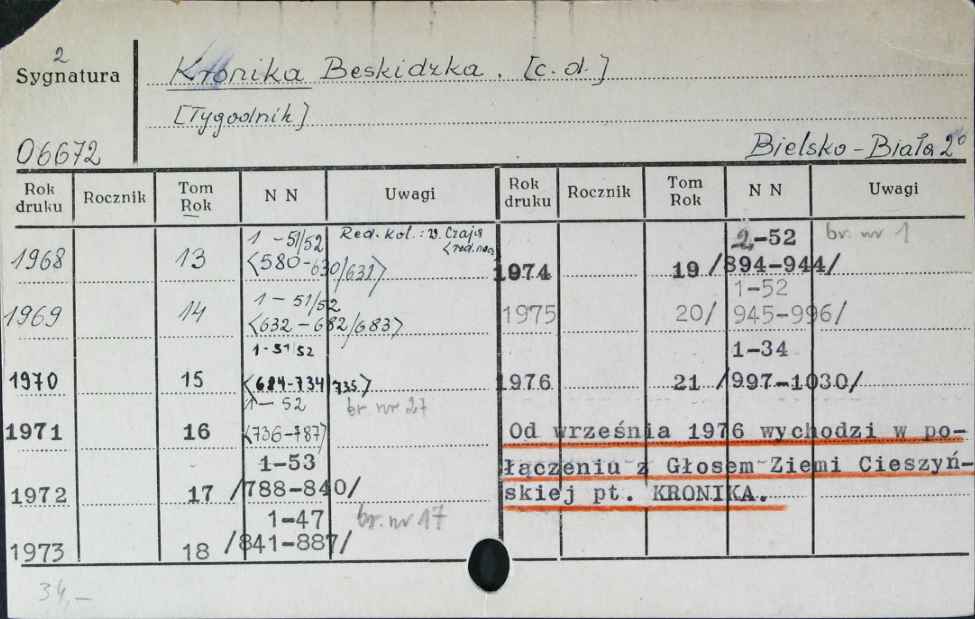 2
Sygnatura
Kronika Beskidzka. [c.d.]
[Tygodnik]
06672
Bielsko-Biała 2°
Rok druku Rocznik Tom Rok N N Uwagi
Rok druku Rocznik Tom Rok N N Uwagi
1968 13 1 - 51/52 <580-630/631> Red. kol.: W. Czaja
1969 14 1 - 51/52 <632-682/683>
1970 15 1-51/52 <684-734/735>
1971 16 1 - 52 <736-787> br. nr 27
1972 17 1-53 /788-840/
1973 18 1-47 /841-887/ br. nr 17
1974 19 2-52 /894-944/ br. nr 1
1975 20/ 1-52 945-996/
1976 21 1-34 /997-1030/
Od września 1976 wychodzi w po-
łączeniu z Głosem Ziemi Cieszyń-
skiej pt. KRONIKA.
34,-